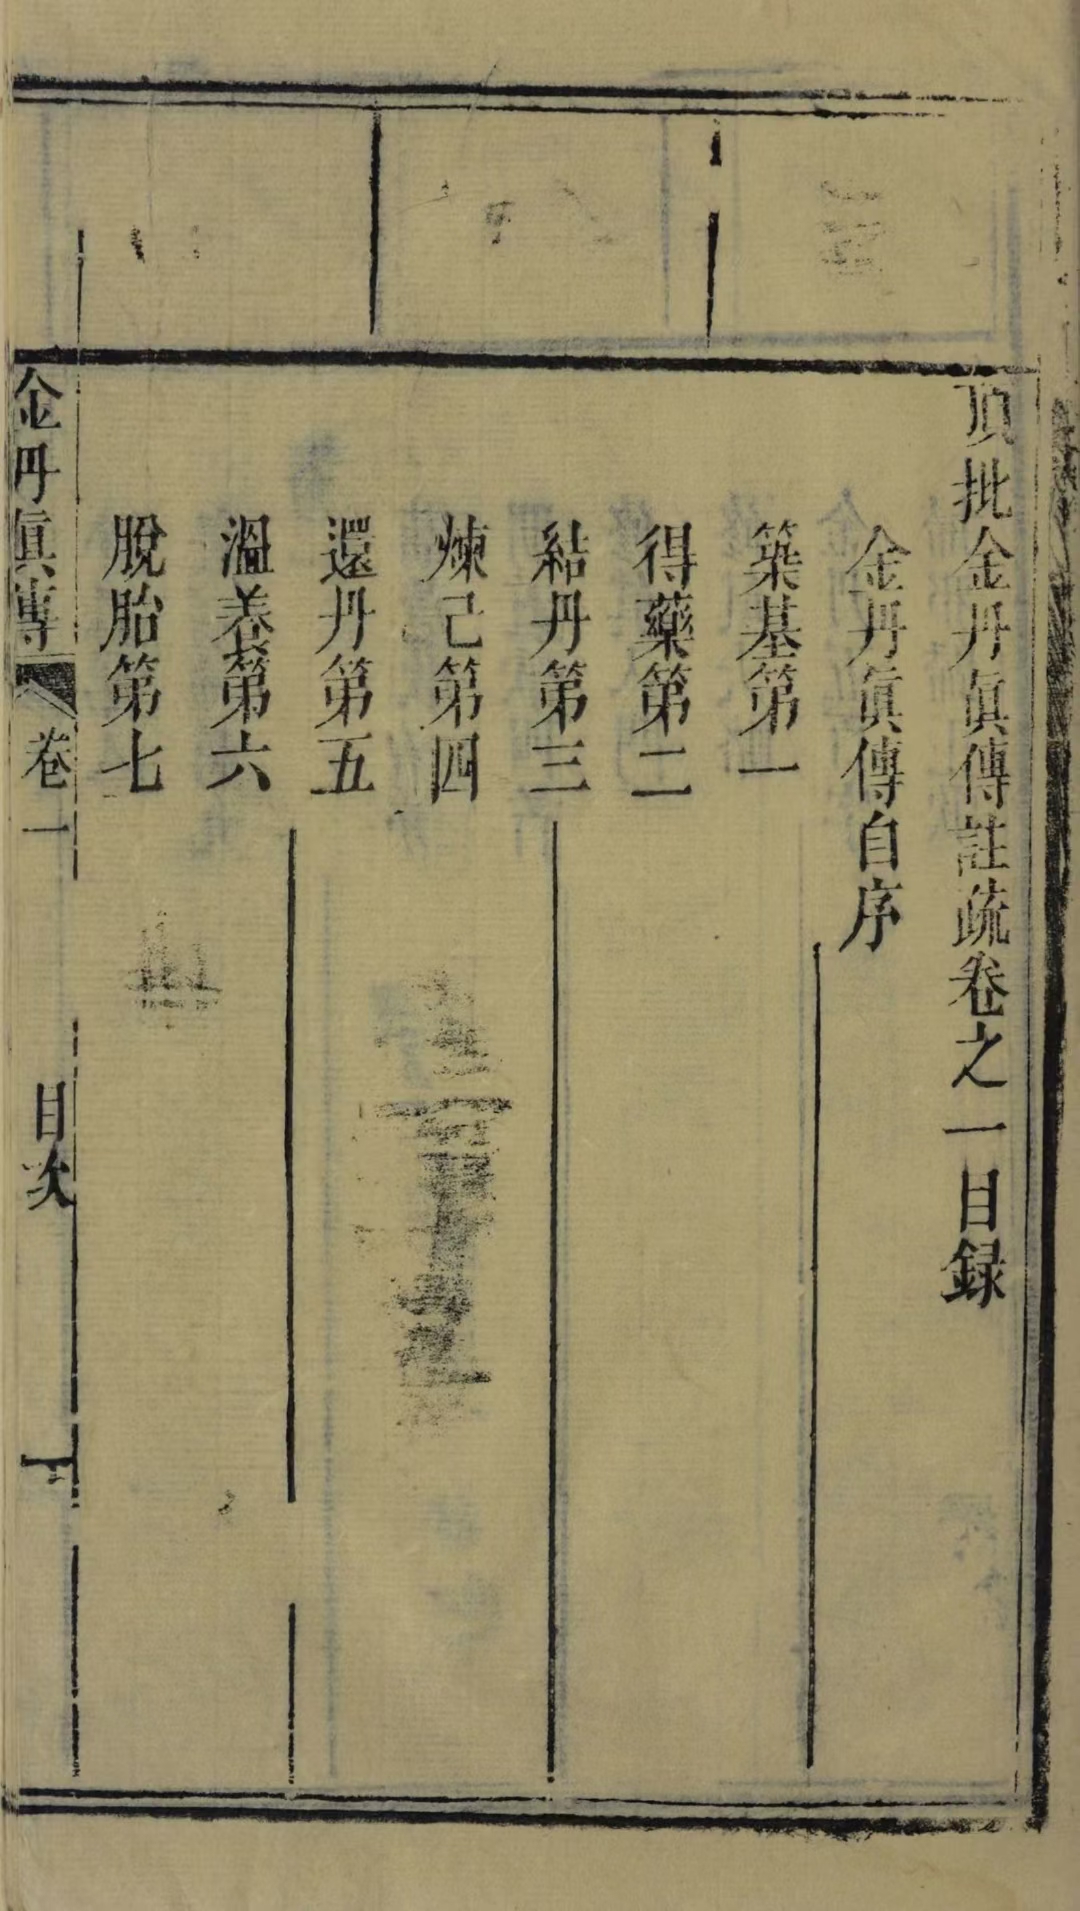 頂批金丹眞傳註疏卷之一目録
金丹眞傳自序
築基第一
得藥第二
結丹第三
煉己第四
還丹第五
溫養第六
脫胎第七
金丹眞傳 卷一 目次 一